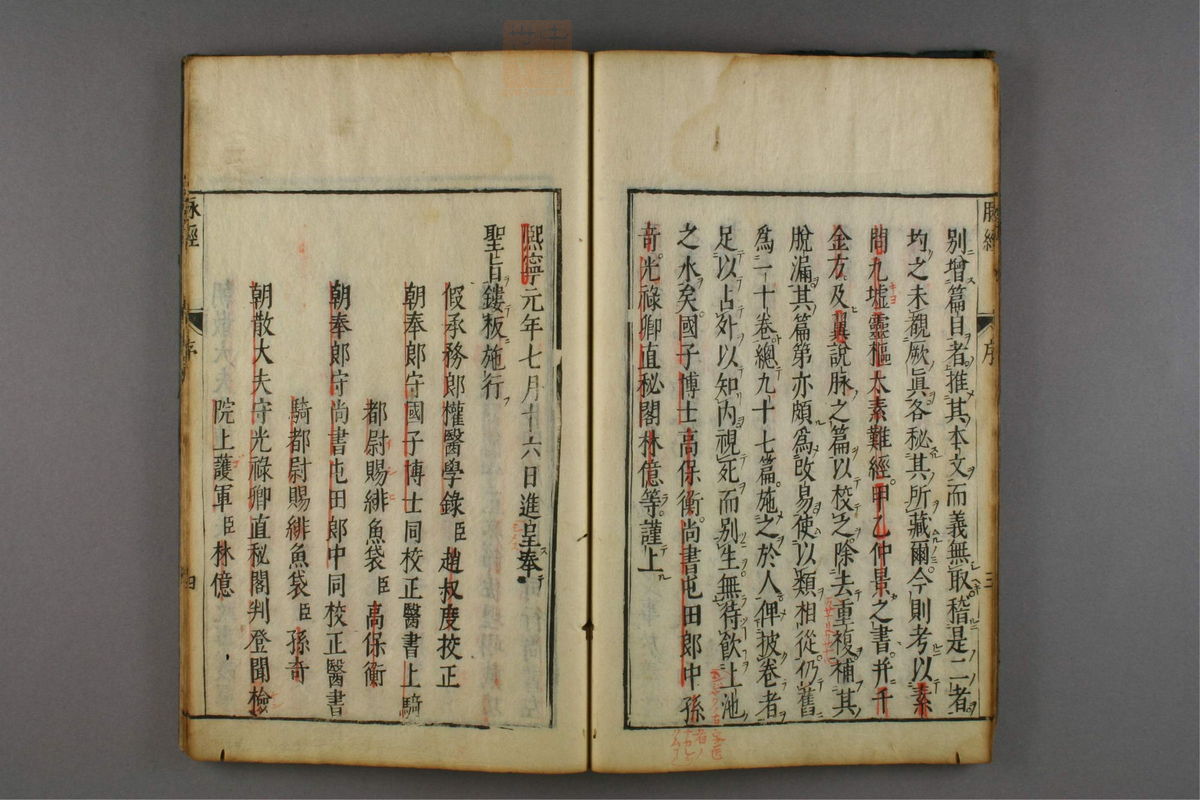 脉經
序
三
別增篇目者推其本文而義無取稽是二者
均之未覩厥眞各秘其所藏爾今則考以素
問九墟靈樞太素難經甲乙仲景之書并千
金方及翼說脉之篇以校之除去重複補其
脫漏其篇第亦頗爲改易使以類相從仍舊
爲一十卷總九十七篇施之於人俾披卷者
足以占外以知內視死而別生無待飲上池
之水矣國子博士高保衡尚書屯田郎中孫
奇光祿卿直秘閣林億等謹上
熙寧元年七月十六日進呈奉
聖旨鏤板施行
假承務郎權醫學錄臣趙叔度校正
朝奉郎守國子博士同校正醫書上騎
都尉賜緋魚袋臣高保衡
朝奉郎守尚書屯田郎中同校正醫書
騎都尉賜緋魚袋臣孫奇
朝散大夫守光祿卿直秘閣判登聞檢
院上護軍臣林億
脉經
序
四